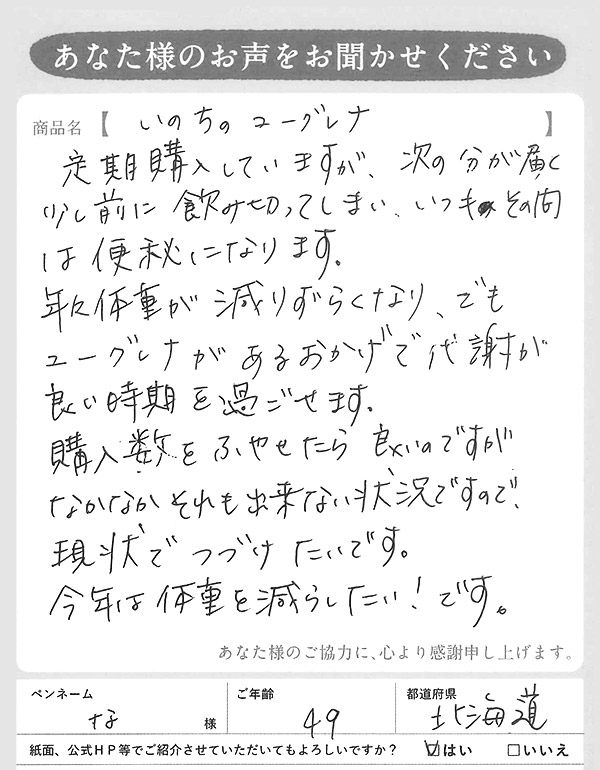 あなた様のお声をお聞かせください
商品名【 いのちのユーグレナ 】
定期購入していますが、次の分が届く
少し前に飲み切ってしまい、いつもその間
は便秘になります。
年々体重が減りずらくなり、でも
ユーグレナがあるおかげで代謝が
良い時期を過ごせます。
購入数をふやせたら良いのですが
なかなかそれも出来ない状況ですので、
現状でつづけたいです。
今年は体重を減らしたい!です。
あなた様のご協力に、心より感謝申し上げます。
ペンネーム ご年齢 都道府県
な 様 49 北海道
紙面、公式HP等でご紹介させていただいてもよろしいですか? ☑はい □いいえ